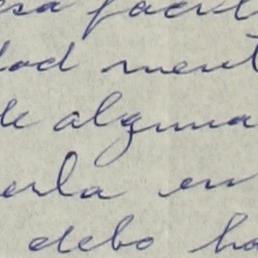 esa facil
dad ment
de alguna
erla en
debo ha